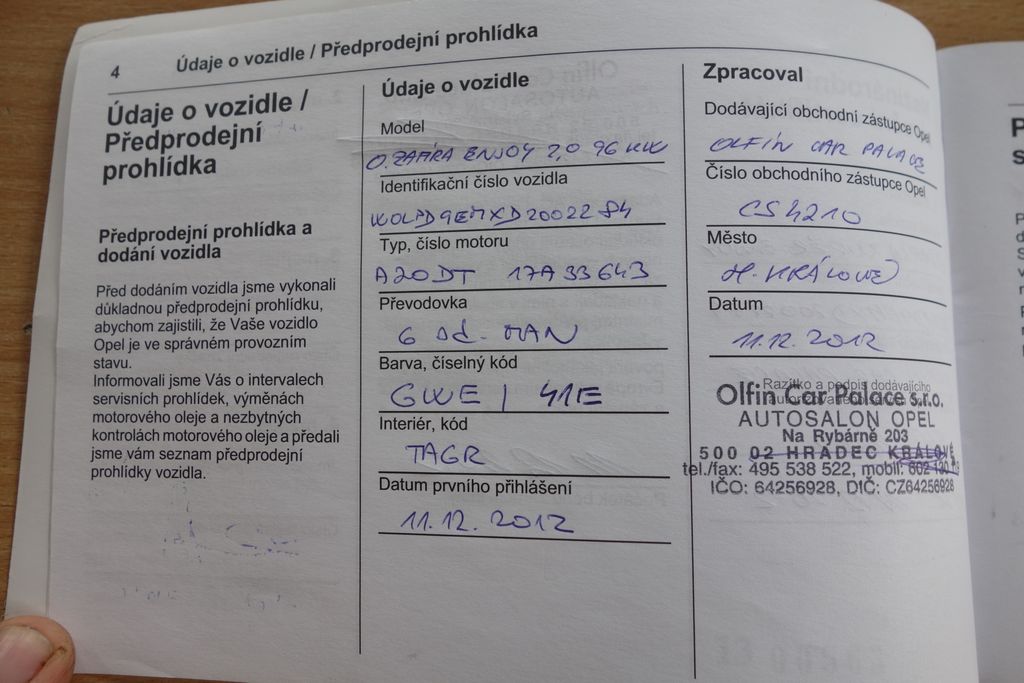 4
Údaje o vozidle / Předprodejní prohlídka
Údaje o vozidle /
Předprodejní
prohlídka
Předprodejní prohlídka a
dodání vozidla
Před dodáním vozidla jsme vykonali
důkladnou předprodejní prohlídku,
abychom zajistili, že Vaše vozidlo
Opel je ve správném provozním
stavu.
Informovali jsme Vás o intervalech
servisních prohlídek, výměnách
motorového oleje a nezbytných
kontrolách motorového oleje a předali
jsme vám seznam předprodejní
prohlídky vozidla.
Údaje o vozidle
Model
O. ZAFIRA ENJOY 2,0 96 KW
Identifikační číslo vozidla
WOLPD9EMXD2002284
Typ, číslo motoru
A20DT 17A33643
Převodovka
6 od. MAN
Barva, číselný kód
GWE / 41E
Interiér, kód
TAGR
Datum prvního přihlášení
11.12.2012
Zpracoval
Dodávající obchodní zástupce Opel
OLFIN CAR PALACE
Číslo obchodního zástupce Opel
CS4210
Město
H. KRÁLOVÉ
Datum
11.12.2012
Razítko a podpis dodávajícího
Olfin Car Palace s.r.o.
AUTOSALON OPEL
Na Rybárně 203
500 02 HRADEC KRÁLOVÉ
tel./fax: 495 538 522, mobil: 602
IČO: 64256928, DIČ: CZ64256928